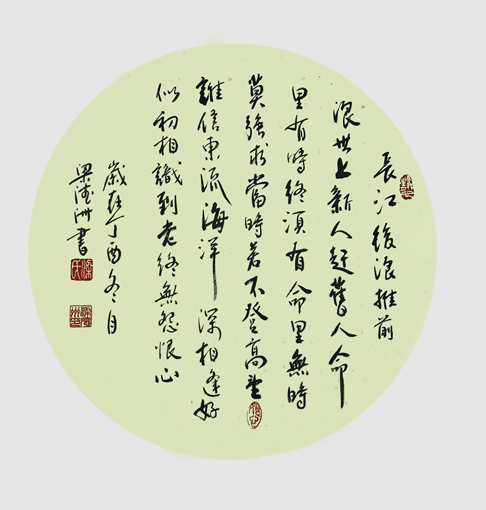 長江後浪推前
浪世上新人趕舊人命
里有時終須有命里無時
莫強求當時若不登高望
誰信東流海洋深相逢好
似初相識到老終無怨恨心
歲在丁酉冬月
梁溎洲書